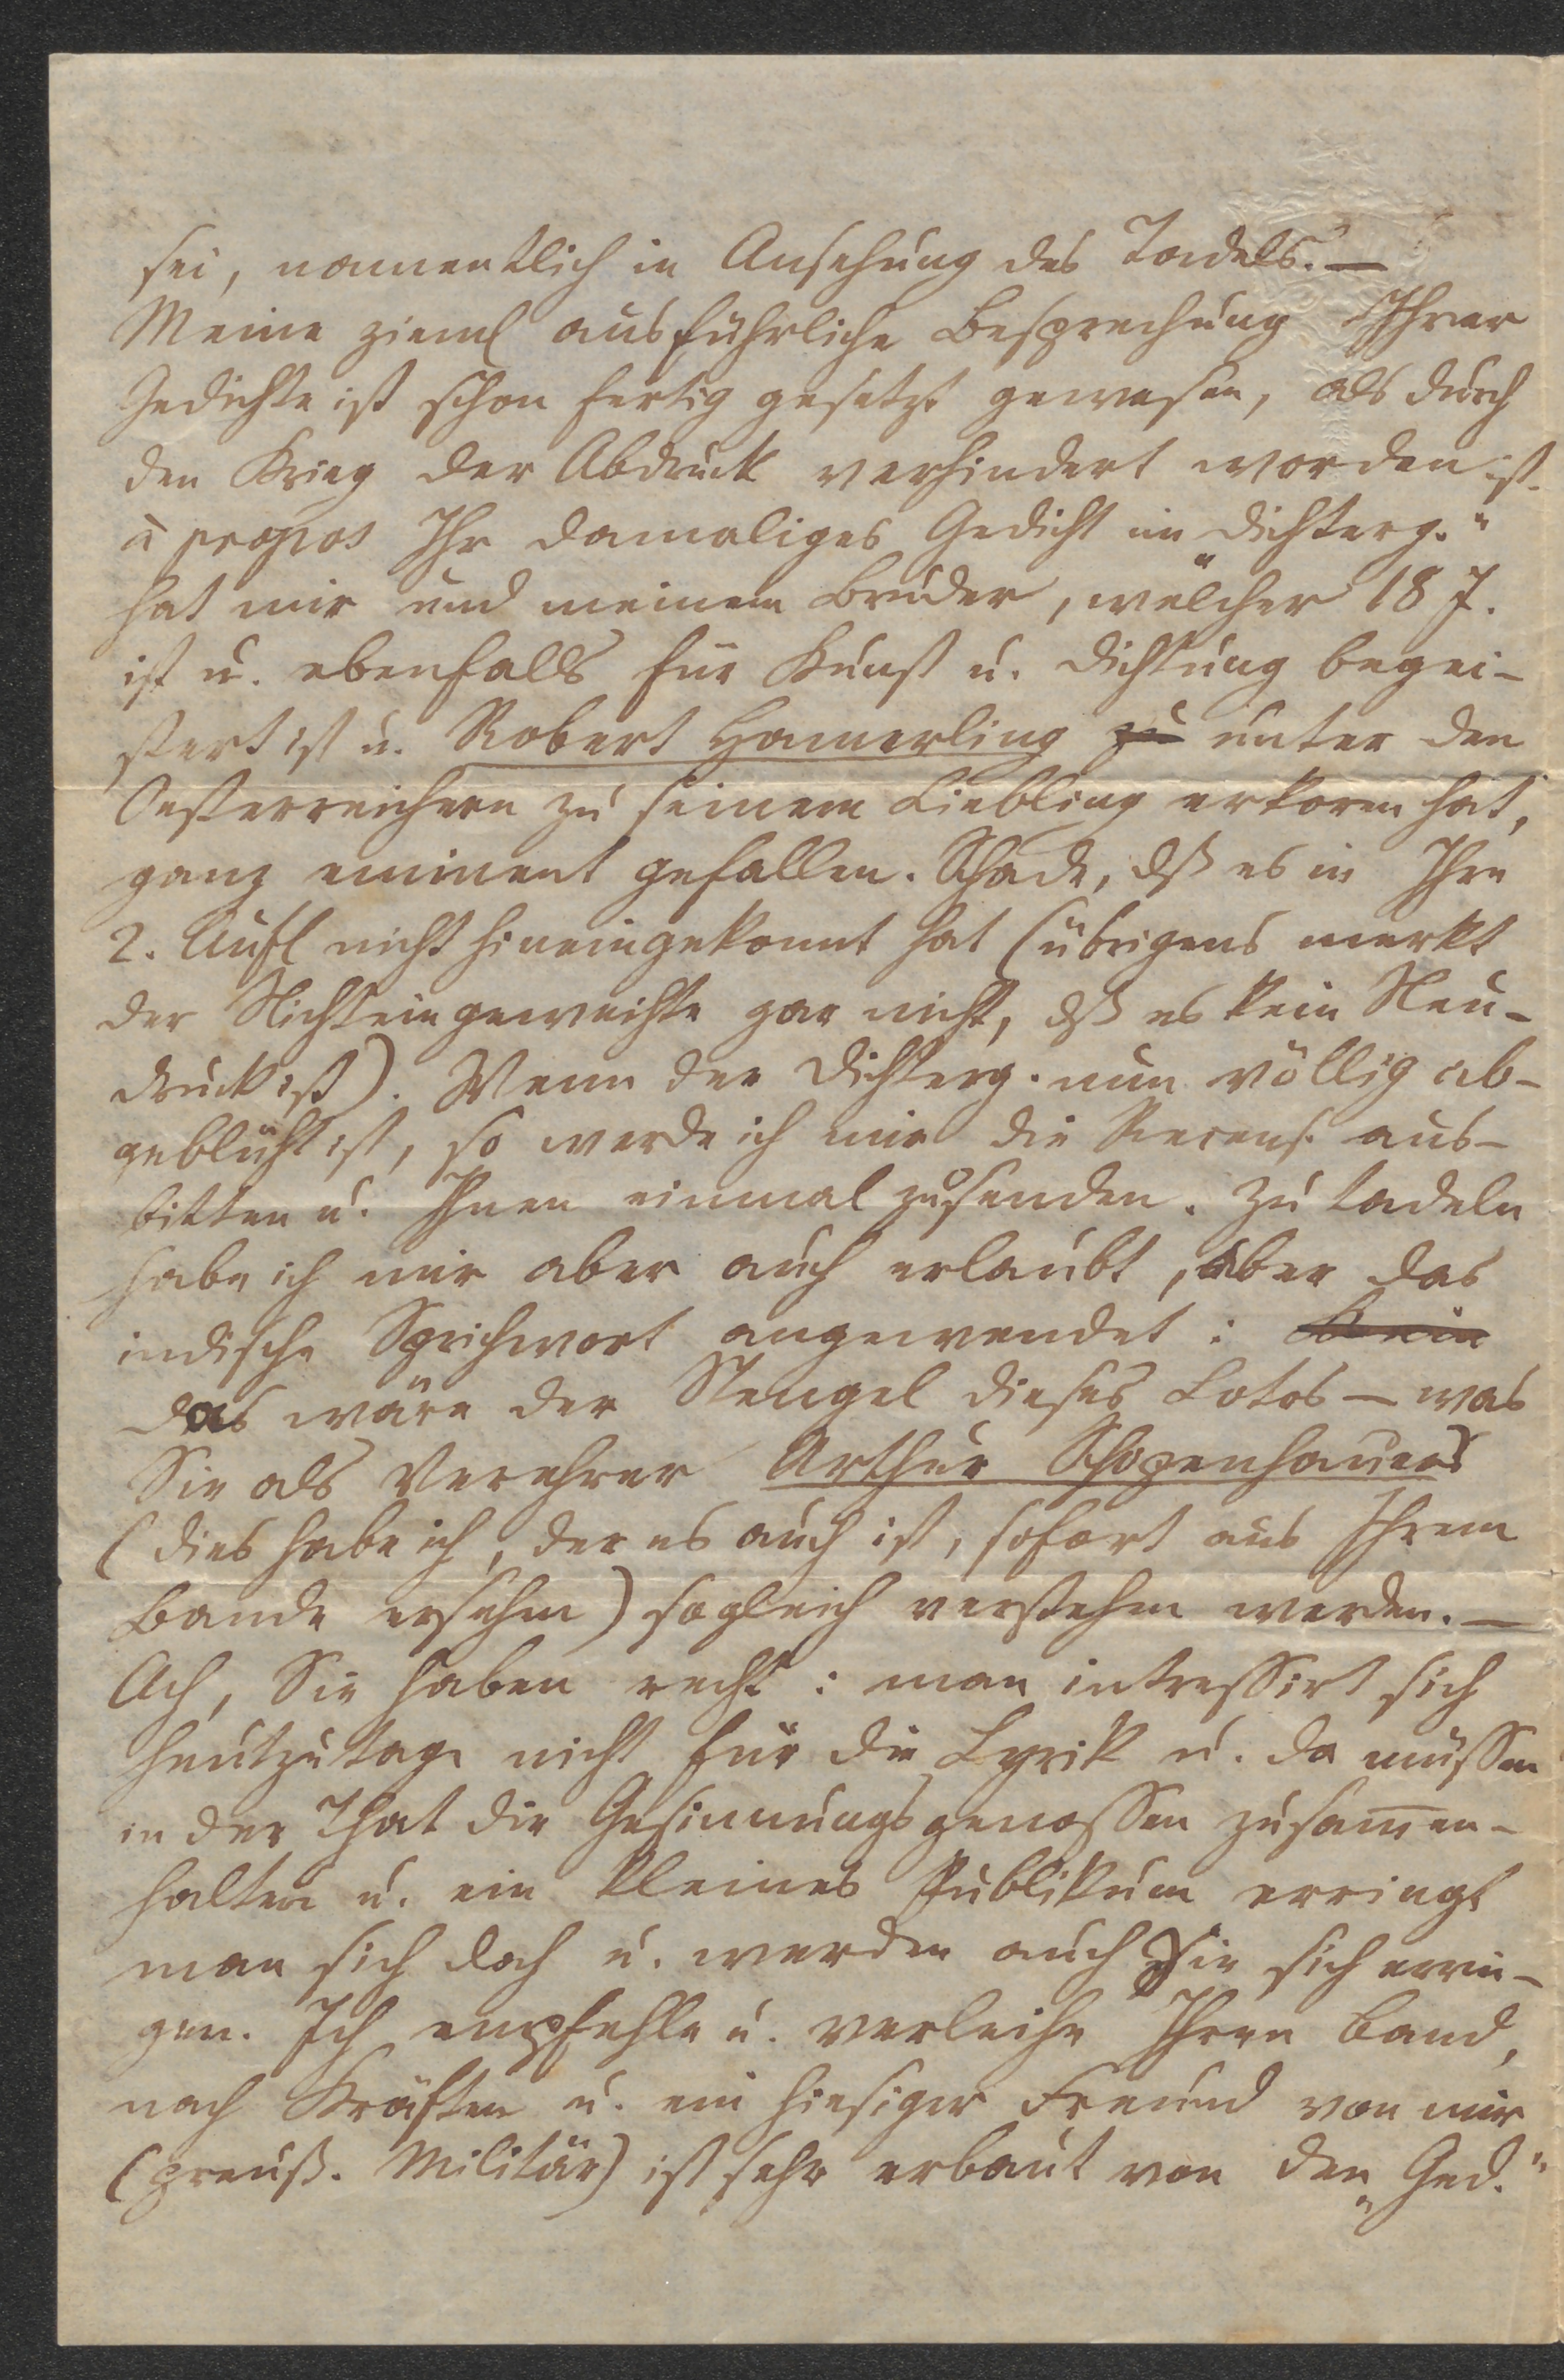 sei, namentlich in Ansehung des Tadels. —
Meine zieml ausführliche Besprechung Ihrer
Gedichte ist schon fertig gesetzt gewesen, als durch
den Krieg der Abdruck verhindert worden ist.
à propos Ihr damaliges Gedicht im „Dichterg.“
hat mir und meinem Bruder, welcher 18 J.
ist u. ebenfalls für Kunst u. Dichtung begei-
stert ist u. Robert Hamerling zu unter den
Oesterreichern zu seinem Liebling erkoren hat,
ganz eminent gefallen. Schade, dß es in Ihre
2. Aufl nicht hineingekonnt hat (übrigens merkt
der Nichteingeweihte gar nicht, dß es kein Neu-
druck ist). Wenn der Dichterg. nun völlig ab-
geblüht ist, so werde ich mir die Recens. aus-
bitten u. Ihnen einmal zusenden. Zu tadeln
habe ich mir aber auch erlaubt, aber das
indische Sprichwort angewendet: Kein
das wäre der Stengel dieses Lotos — was
Sie als Verehrer Arthur Schopenhauers
(dies habe ich, der es auch ist, sofort aus Ihrem
Bande ersehen) sogleich verstehen werden. —
Ach, Sie haben recht: man intressirt sich
heutzutage nicht für die Lyrik u. da müssen
in der That die Gesinnungsgenossen zusam̅en-
halten u. ein kleines Publikum erringt
man sich doch u. werden auch Sie sich errin-
gen. Ich empfehle u. verleihe Ihren Band,
nach Kräften u. ein hiesiger Freund von mir
(preuß. Militär) ist sehr erbaut von den „Ged.“